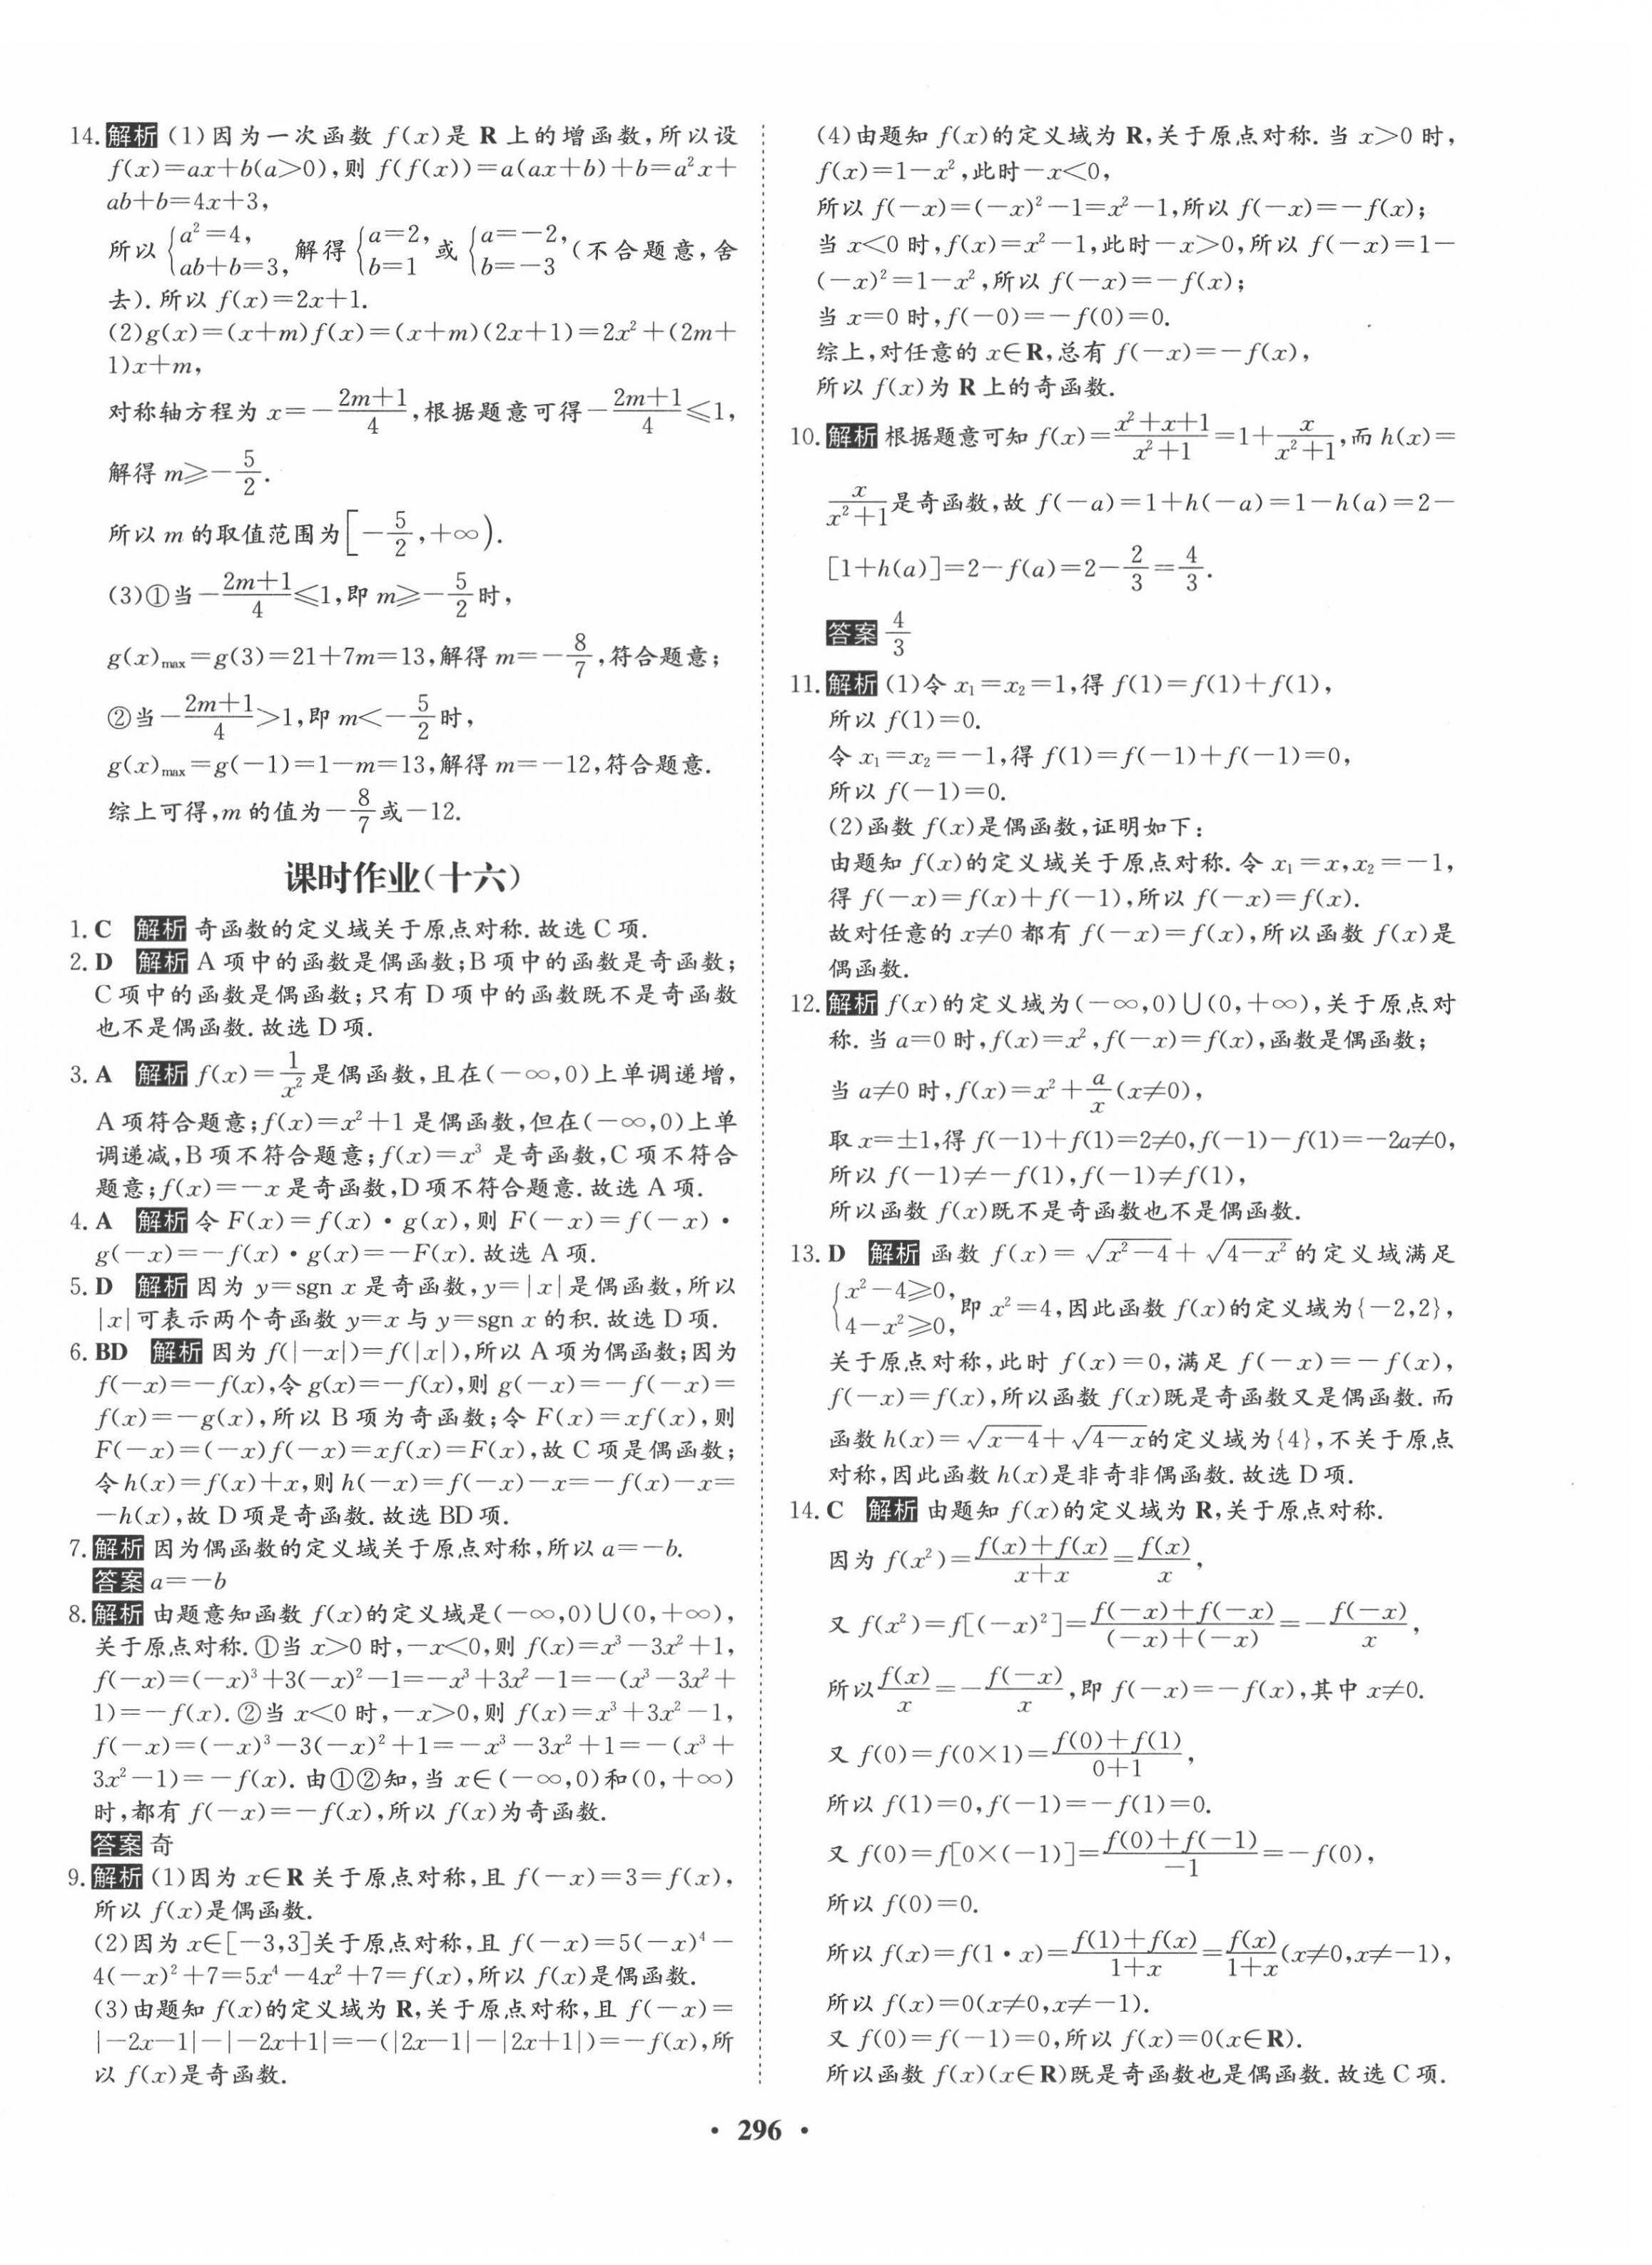 14.解析 (1)因为一次函数 f(x)是 R 上的增函数,所以设
f(x)=ax+b(a>0),则 f(f(x))=a(ax+b)+b=a²x+
ab+b=4x+3,
所以 {a²=4, ab+b=3, 解得 {a=2, b=1 或 {a=-2, b=-3 (不合题意,舍
去).所以 f(x)=2x+1.
(2)g(x)=(x+m)f(x)=(x+m)(2x+1)=2x²+(2m+
1)x+m,
对称轴方程为 x=-(2m+1)/4,根据题意可得-(2m+1)/4≤1,
解得 m≥-5/2.
所以 m 的取值范围为[-5/2,+∞).
(3)①当-(2m+1)/4≤1,即 m≥-5/2时,
g(x)max=g(3)=21+7m=13,解得 m=-8/7,符合题意;
②当-(2m+1)/4>1,即 m<-5/2时,
g(x)max=g(-1)=1-m=13,解得 m=-12,符合题意.
综上可得,m 的值为-8/7或-12.
课时作业(十六)
1. C 解析 奇函数的定义域关于原点对称.故选 C 项.
2. D 解析 A 项中的函数是偶函数;B 项中的函数是奇函数;
C 项中的函数是偶函数;只有 D 项中的函数既不是奇函数
也不是偶函数.故选 D 项.
3. A 解析 f(x)=1/x²是偶函数,且在(-∞,0)上单调递增,
A 项符合题意;f(x)=x²+1 是偶函数,但在(-∞,0)上单
调递减,B 项不符合题意;f(x)=x³ 是奇函数,C 项不符合
题意;f(x)=-x 是奇函数,D 项不符合题意.故选 A 项.
4. A 解析 令 F(x)=f(x)·g(x),则 F(-x)=f(-x)·
g(-x)=-f(x)·g(x)=-F(x).故选 A 项.
5. D 解析 因为 y=sgn x 是奇函数,y=|x|是偶函数,所以
|x|可表示两个奇函数 y=x 与 y=sgn x 的积.故选 D 项.
6. BD 解析 因为 f(|-x|)=f(|x|),所以 A 项为偶函数;因为
f(-x)=-f(x),令 g(x)=-f(x),则 g(-x)=-f(-x)=
f(x)=-g(x),所以 B 项为奇函数;令 F(x)=xf(x),则
F(-x)=(-x)f(-x)=xf(x)=F(x),故 C 项是偶函数;
令 h(x)=f(x)+x,则 h(-x)=f(-x)-x=-f(x)-x=
-h(x),故 D 项是奇函数.故选 BD 项.
7.解析 因为偶函数的定义域关于原点对称,所以 a=-b.
答案 a=-b
8.解析 由题意知函数 f(x)的定义域是(-∞,0)∪(0,+∞),
关于原点对称.①当 x>0 时,-x<0,则 f(x)=x³-3x²+1,
f(-x)=(-x)³+3(-x)²-1=-x³+3x²-1=-(x³-3x²+
1)=-f(x).②当 x<0 时,-x>0,则 f(x)=x³+3x²-1,
f(-x)=(-x)³-3(-x)²+1=-x³-3x²+1=-(x³+
3x²-1)=-f(x).由①②知,当 x∈(-∞,0)和(0,+∞)
时,都有 f(-x)=-f(x),所以 f(x)为奇函数.
答案 奇
9.解析 (1)因为 x∈R 关于原点对称,且 f(-x)=3=f(x),
所以 f(x)是偶函数.
(2)因为 x∈[-3,3]关于原点对称,且 f(-x)=5(-x)⁴-
4(-x)²+7=5x⁴-4x²+7=f(x),所以 f(x)是偶函数.
(3)由题知 f(x)的定义域为 R,关于原点对称,且 f(-x)=
|-2x-1|-|-2x+1|=-(|2x-1|-|2x+1|)=-f(x),所
以 f(x)是奇函数.
(4)由题知 f(x)的定义域为 R,关于原点对称.当 x>0 时,
f(x)=1-x²,此时-x<0,
所以 f(-x)=(-x)²-1=x²-1,所以 f(-x)=-f(x);
当 x<0 时,f(x)=x²-1,此时-x>0,所以 f(-x)=1-
(-x)²=1-x²,所以 f(-x)=-f(x);
当 x=0 时,f(-0)=-f(0)=0.
综上,对任意的 x∈R,总有 f(-x)=-f(x),
所以 f(x)为 R 上的奇函数.
10.解析 根据题意可知 f(x)=(x²+x+1)/(x²+1)=1+x/(x²+1),而 h(x)=
x/(x²+1)是奇函数,故 f(-a)=1+h(-a)=1-h(a)=2-
[1+h(a)]=2-f(a)=2-2/3=4/3.
答案 4/3
11.解析 (1)令 x₁=x₂=1,得 f(1)=f(1)+f(1),
所以 f(1)=0.
令 x₁=x₂=-1,得 f(1)=f(-1)+f(-1)=0,
所以 f(-1)=0.
(2)函数 f(x)是偶函数,证明如下:
由题知 f(x)的定义域关于原点对称.令 x₁=x,x₂=-1,
得 f(-x)=f(x)+f(-1),所以 f(-x)=f(x).
故对任意的 x≠0 都有 f(-x)=f(x),所以函数 f(x)是
偶函数.
12.解析 f(x)的定义域为(-∞,0)∪(0,+∞),关于原点对
称.当 a=0 时,f(x)=x²,f(-x)=f(x),函数是偶函数;
当 a≠0 时,f(x)=x²+a/x(x≠0),
取 x=±1,得 f(-1)+f(1)=2≠0,f(-1)-f(1)=-2a≠0,
所以 f(-1)≠-f(1),f(-1)≠f(1),
所以函数 f(x)既不是奇函数也不是偶函数.
13. D 解析 函数 f(x)=√(x²-4)+√(4-x²)的定义域满足
{x²-4≥0, 4-x²≥0, 即 x²=4,因此函数 f(x)的定义域为{-2,2},
关于原点对称,此时 f(x)=0,满足 f(-x)=-f(x),
f(-x)=f(x),所以函数 f(x)既是奇函数又是偶函数.而
函数 h(x)=√(x-4)+√(4-x)的定义域为{4},不关于原点
对称,因此函数 h(x)是非奇非偶函数.故选 D 项.
14. C 解析 由题知 f(x)的定义域为 R,关于原点对称.
因为 f(x²)=(f(x)+f(x))/(x+x)=f(x)/x,
又 f(x²)=f[(-x)²]=(f(-x)+f(-x))/((-x)+(-x))=-f(-x)/x,
所以f(x)/x=-f(-x)/x,即 f(-x)=-f(x),其中 x≠0.
又 f(0)=f(0×1)=(f(0)+f(1))/(0+1),
所以 f(1)=0,f(-1)=-f(1)=0.
又 f(0)=f[0×(-1)]=(f(0)+f(-1))/(-1)=-f(0),
所以 f(0)=0.
所以 f(x)=f(1·x)=(f(1)+f(x))/(1+x)=f(x)/(1+x)(x≠0,x≠-1),
所以 f(x)=0(x≠0,x≠-1).
又 f(0)=f(-1)=0,所以 f(x)=0(x∈R).
所以函数 f(x)(x∈R)既是奇函数也是偶函数.故选 C 项.
· 296 ·